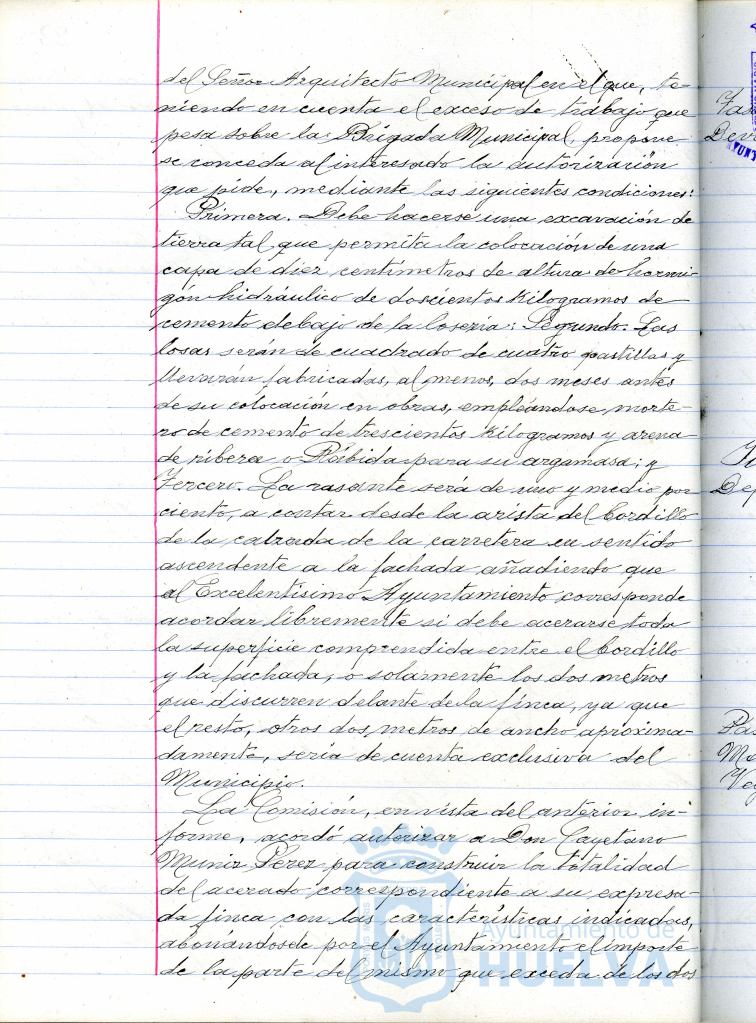 del Señor Arquitecto Municipal en el que, te-
niendo en cuenta el exceso de trabajo que
pesa sobre la Brigada Municipal, propone
se conceda al interesado la autorización
que pide, mediante las siguientes condiciones:
Primera. Debe hacerse una excavación de
tierra tal que permita la colocación de una
capa de diez centímetros de altura de hormi-
gón hidráulico de doscientos kilogramos de
cemento debajo de la losería: Segundo. Las
losas serán de cuadrado de cuatro pastillas y
llevarán fabricadas, al menos, dos meses antes
de su colocación en obras, empleándose morte-
ro de cemento de trescientos kilogramos y arena
de ribera o Rábida para su argamasa; y
Tercero. La rasante será de uno y medio por
ciento, a contar desde la arista del bordillo
de la calzada de la carretera en sentido
ascendente a la fachada añadiendo que
al Excelentísimo Ayuntamiento corresponde
acordar libremente si debe acerarse toda
la superficie comprendida entre el bordillo
y la fachada, o solamente los dos metros
que discurren delante de la finca, ya que
el resto, otros dos metros de ancho aproxima-
damente, sería de cuenta exclusiva del
Municipio.
La Comisión, en vista del anterior in-
forme, acordó autorizar a Don Cayetano
Muniz Pérez para construir la totalidad
del acerado correspondiente a su expresa-
da finca con las características indicadas,
abonándosele por el Ayuntamiento el importe
de la parte del mismo que exceda de los dos
Ayuntamiento de
HUELVA